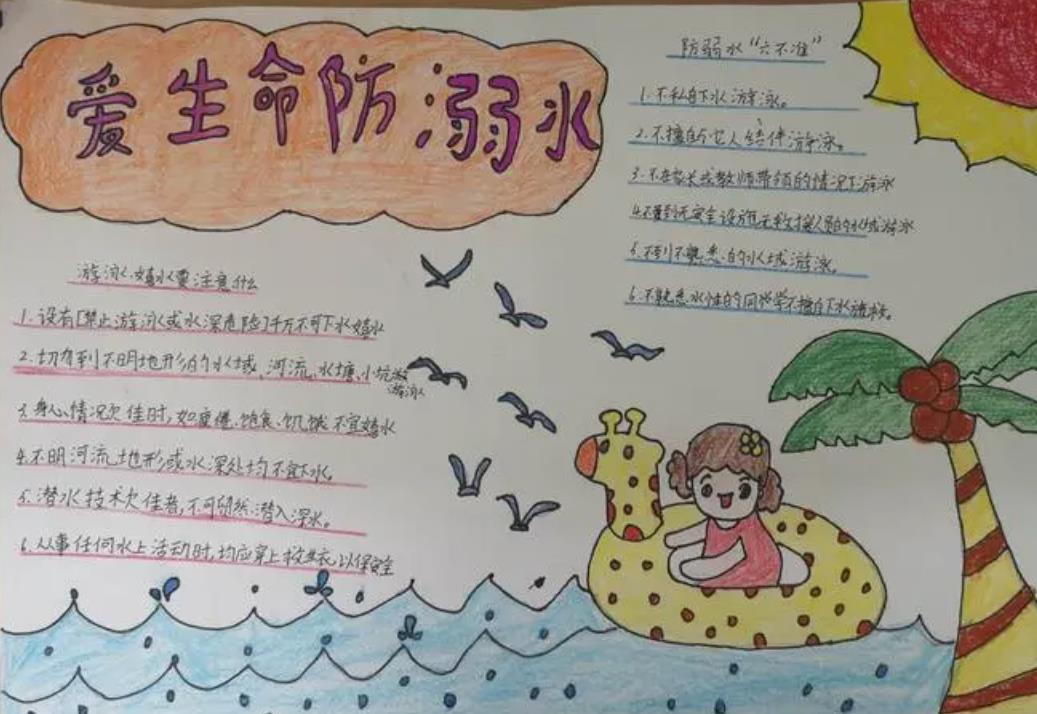 爱生命防溺水
游泳、嬉水要注意什么
1.设有[禁止游泳或水深危险]千万不可下水嬉水
2.切勿到不明地形的水域、河流、水塘、小坑
游泳
3.身心情况欠佳时,如疲倦、饱食、饥饿不宜嬉水
4.不明河流地形或水深处均不宜下水。
5.潜水技术欠佳者,不可贸然潜入深水。
6.从事任何水上活动时,均应穿上救生衣,以保安全
防溺水“六不准”
1.不私自下水游泳。
2.不擅自与他人结伴游泳。
3.不在家长或教师带领的情况下游泳
4.不到无安全设施无救援人员的水域游泳
5.不到不熟悉的水域游泳。
6.不熟悉水性的同学不擅自下水施救。